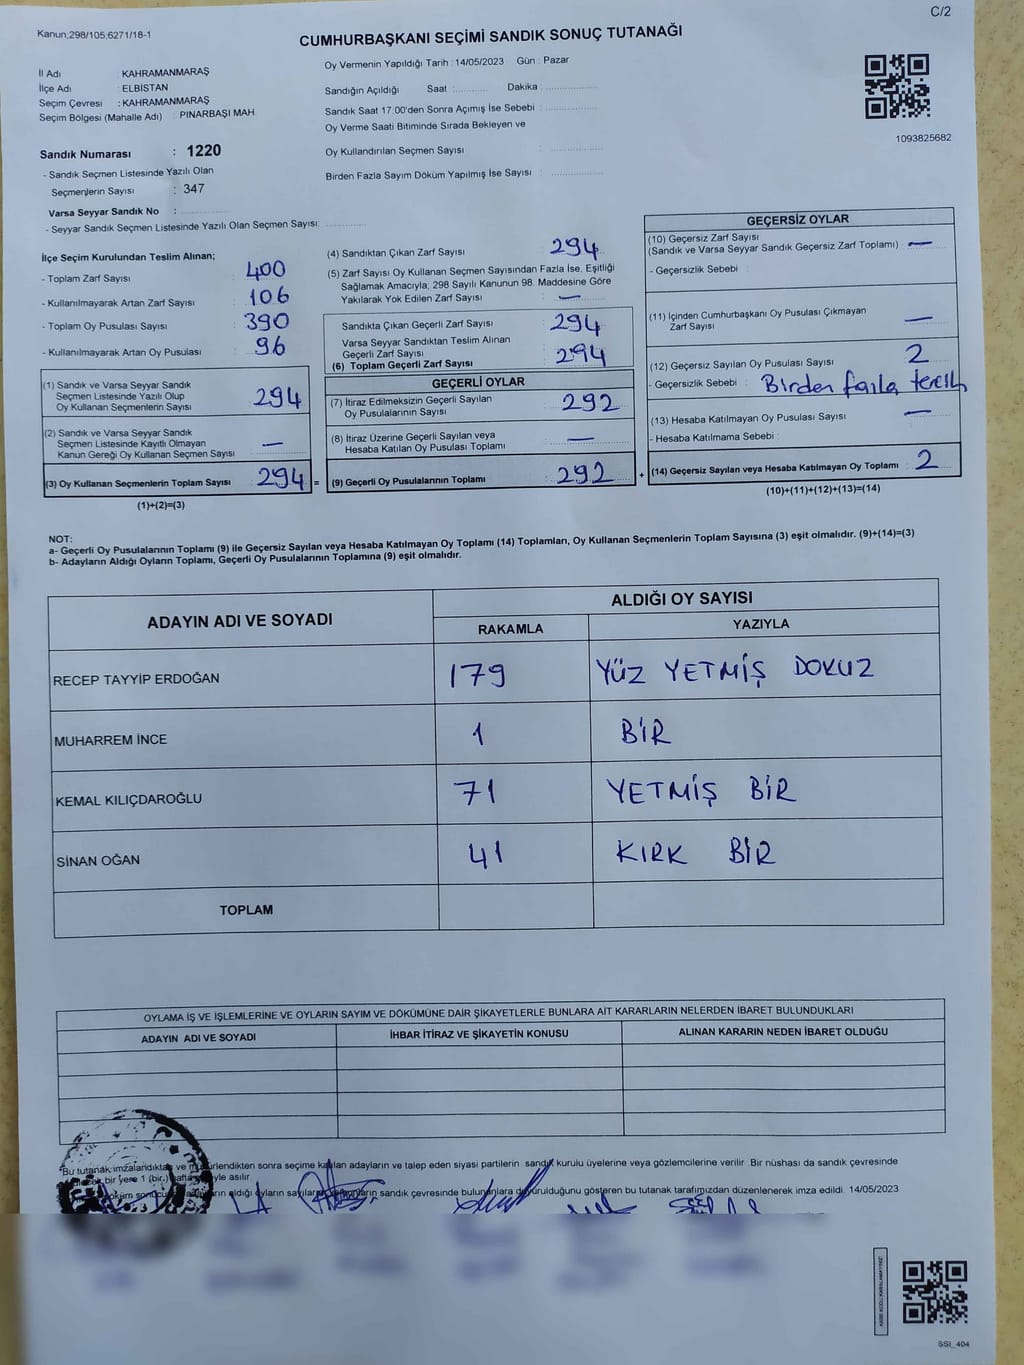 C/2
Kanun;298/105;6271/18-1
CUMHURBAŞKANI SEÇİMİ SANDIK SONUÇ TUTANAĞI
İl Adı : KAHRAMANMARAŞ
İlçe Adı : ELBİSTAN
Seçim Çevresi : KAHRAMANMARAŞ
Seçim Bölgesi (Mahalle Adı) : PINARBAŞI MAH.
Oy Vermenin Yapıldığı Tarih : 14/05/2023 Gün : Pazar
Sandığın Açıldığı Saat : Dakika :
Sandık Saat 17.00'den Sonra Açımış İse Sebebi :
Oy Verme Saati Bitiminde Sırada Bekleyen ve
Oy Kullandırılan Seçmen Sayısı :
Birden Fazla Sayım Döküm Yapılmış İse Sayısı :
1093825682
Sandık Numarası : 1220
- Sandık Seçmen Listesinde Yazılı Olan
Seçmenlerin Sayısı : 347
Varsa Seyyar Sandık No :
- Seyyar Sandık Seçmen Listesinde Yazılı Olan Seçmen Sayısı:
İlçe Seçim Kurulundan Teslim Alınan;
- Toplam Zarf Sayısı : 400
- Kullanılmayarak Artan Zarf Sayısı : 106
- Toplam Oy Pusulası Sayısı : 390
- Kullanılmayarak Artan Oy Pusulası : 96
(1) Sandık ve Varsa Seyyar Sandık
Seçmen Listesinde Yazılı Olup
Oy Kullanan Seçmenlerin Sayısı : 294
(2) Sandık ve Varsa Seyyar Sandık
Seçmen Listesinde Kayıtlı Olmayan
Kanun Gereği Oy Kullanan Seçmen Sayısı : —
(3) Oy Kullanan Seçmenlerin Toplam Sayısı : 294 =
(1)+(2)=(3)
(4) Sandıktan Çıkan Zarf Sayısı : 294
(5) Zarf Sayısı Oy Kullanan Seçmen Sayısından Fazla İse, Eşitliği
Sağlamak Amacıyla; 298 Sayılı Kanunun 98. Maddesine Göre
Yakılarak Yok Edilen Zarf Sayısı : —
Sandıkta Çıkan Geçerli Zarf Sayısı : 294
Varsa Seyyar Sandıktan Teslim Alınan
Geçerli Zarf Sayısı
(6) Toplam Geçerli Zarf Sayısı : 294
GEÇERLİ OYLAR
(7) İtiraz Edilmeksizin Geçerli Sayılan
Oy Pusulalarının Sayısı : 292
(8) İtiraz Üzerine Geçerli Sayılan veya
Hesaba Katılan Oy Pusulası Toplamı : —
(9) Geçerli Oy Pusulalarının Toplamı : 292 +
GEÇERSİZ OYLAR
(10) Geçersiz Zarf Sayısı
(Sandık ve Varsa Seyyar Sandık Geçersiz Zarf Toplamı) : —
- Geçersizlik Sebebi :
(11) İçinden Cumhurbaşkanı Oy Pusulası Çıkmayan
Zarf Sayısı : —
(12) Geçersiz Sayılan Oy Pusulası Sayısı : 2
- Geçersizlik Sebebi : Birden fazla tercih
(13) Hesaba Katılmayan Oy Pusulası Sayısı : —
- Hesaba Katılmama Sebebi :
(14) Geçersiz Sayılan veya Hesaba Katılmayan Oy Toplamı : 2
(10)+(11)+(12)+(13)=(14)
NOT:
a- Geçerli Oy Pusulalarının Toplamı (9) ile Geçersiz Sayılan veya Hesaba Katılmayan Oy Toplamı (14) Toplamları, Oy Kullanan Seçmenlerin Toplam Sayısına (3) eşit olmalıdır. (9)+(14)=(3)
b- Adayların Aldığı Oyların Toplamı, Geçerli Oy Pusulalarının Toplamına (9) eşit olmalıdır.
ADAYIN ADI VE SOYADI
ALDIĞI OY SAYISI
RAKAMLA YAZIYLA
RECEP TAYYİP ERDOĞAN 179 YÜZ YETMİŞ DOKUZ
MUHARREM İNCE 1 BİR
KEMAL KILIÇDAROĞLU 71 YETMİŞ BİR
SİNAN OĞAN 41 KIRK BİR
TOPLAM
OYLAMA İŞ VE İŞLEMLERİNE VE OYLARIN SAYIM VE DÖKÜMÜNE DAİR ŞİKAYETLERLE BUNLARA AİT KARARLARIN NELERDEN İBARET BULUNDUKLARI
ADAYIN ADI VE SOYADI İHBAR İTİRAZ VE ŞİKAYETİN KONUSU ALINAN KARARIN NEDEN İBARET OLDUĞU
Bu tutanak, imzalandıktan ve sonra seçime katılan adayların ve talep eden siyasi partilerin sandık kurulu üyelerine veya gözlemcilerine verilir. Bir nüshası da sandık çevresinde
bir yere 1 (bir) hafta asılır.
aldığı oyların sandık çevresinde bulunanlara duyurulduğunu gösteren bu tutanak tarafımızdan düzenlenerek imza edildi. 14/05/2023
SSI_404